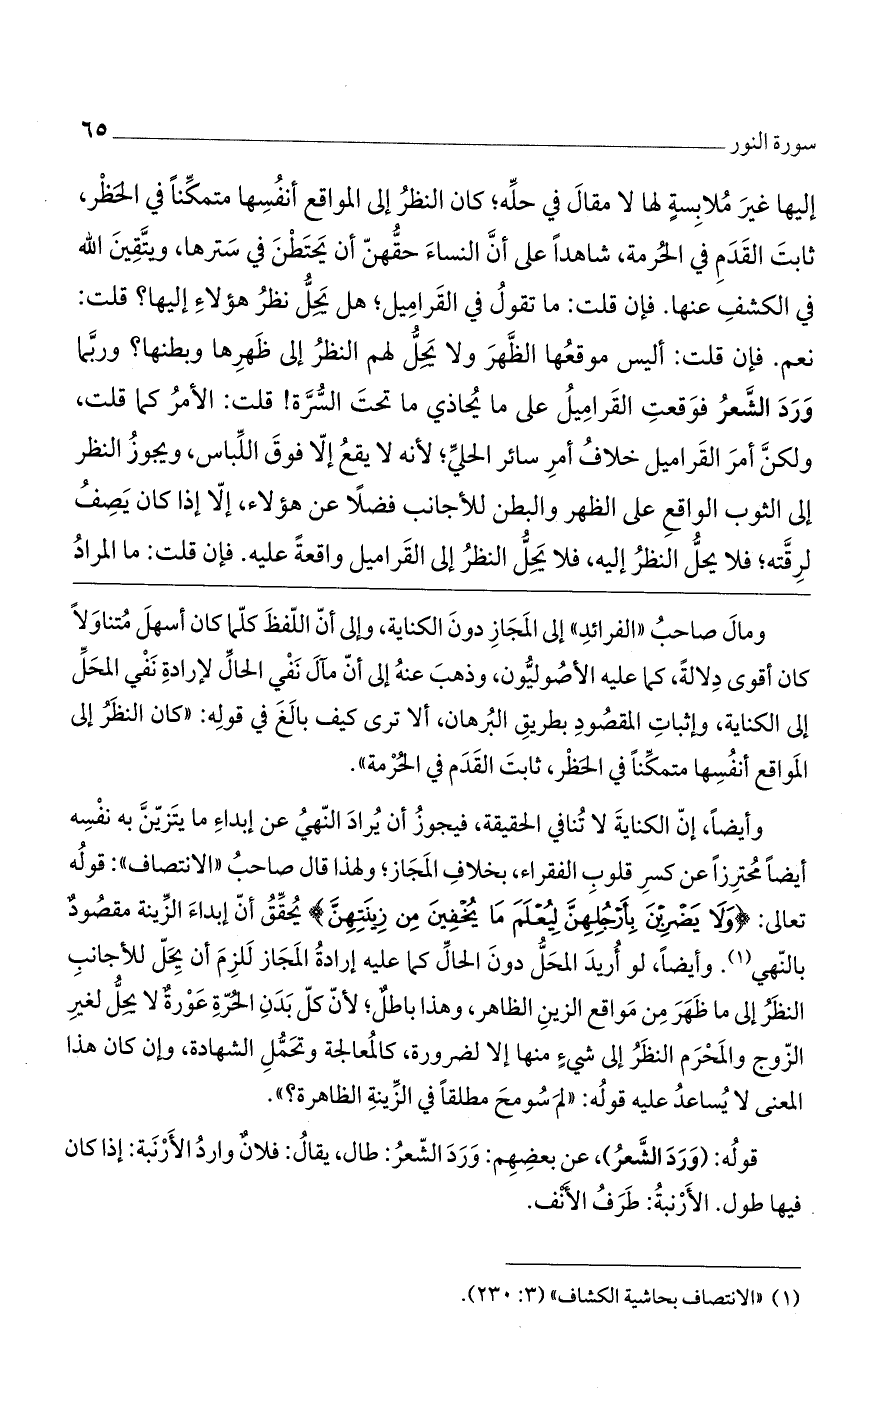 سورة النور ٦٥
إليها غيرَ مُلابِسةٍ لها لا مقالَ في حلِّه؛ كان النظرُ إلى المواقع أنفُسِها متمكِّناً في الحَظْر،
ثابتَ القَدَمِ في الحُرمة، شاهداً على أنَّ النساءَ حقُّهنّ أن يَحتَطْنَ في سَترها، ويتَّقِينَ الله
في الكشفِ عنها. فإن قلت: ما تقولُ في القَرامِيل؛ هل يَحِلُّ نظرُ هؤلاءِ إليها؟ قلت:
نعم. فإن قلت: أليس موقعُها الظَّهرَ ولا يَحِلُّ لهم النظرُ إلى ظَهرِها وبطنها؟ وربَّما
وَرَدَ الشَّعرُ فوَقعتِ القَرامِيلُ على ما يُحاذي ما تحتَ السُّرَّة! قلت: الأمرُ كما قلت،
ولكنَّ أمرَ القَراميل خلافُ أمرِ سائر الحليِّ؛ لأنه لا يقعُ إلّا فوقَ اللِّباس، ويجوزُ النظر
إلى الثوب الواقعِ على الظهر والبطن للأجانب فضلًا عن هؤلاء، إلّا إذا كان يَصِفُ
لرِقَّته؛ فلا يحلُّ النظرُ إليه، فلا يَحِلُّ النظرُ إلى القَراميل واقعةً عليه. فإن قلت: ما المرادُ
ومالَ صاحبُ «الفرائدِ» إلى المَجَازِ دونَ الكناية، وإلى أنّ اللّفظَ كلّما كان أسهلَ مُتناوَلاً
كان أقوى دِلالةً، كما عليه الأصُوليُّون، وذهبَ عنهُ إلى أنّ مآلَ نَفْي الحالِّ لإرادةِ نَفْي المحَلِّ
إلى الكناية، وإثباتِ المقصُودِ بطريقِ البُرهان، ألا ترى كيف بالَغَ في قولِه: «كان النظَرُ إلى
المَواقع أنفُسِها متمكِّناً في الحَظْر، ثابتَ القَدَم في الحُرْمة».
وأيضاً، إنّ الكنايةَ لا تُنافي الحقيقة، فيجوزُ أن يُرادَ النّهيُ عن إبداءِ ما يتَزيّنَّ به نفْسِه
أيضاً مُحترِزاً عن كسرِ قلوبِ الفقراء، بخلافِ المَجَاز؛ ولهذا قال صاحبُ «الانتصاف»: قولُه
تعالى: ﴿وَلَا يَضْرِبْنَ بِأَرْجُلِهِنَّ لِيُعْلَمَ مَا يُخْفِينَ مِن زِينَتِهِنَّ﴾ يُحقِّقُ أنّ إبداءَ الزِّينة مقصُودٌ
بالنّهي(١). وأيضاً، لو أُريدَ المحَلُّ دونَ الحالِّ كما عليه إرادةُ المَجاز لَلزِمَ أن يَحِلّ للأجانبِ
النظَرُ إلى ما ظَهَرَ مِن مَواقع الزينِ الظاهر، وهذا باطلٌ؛ لأنّ كلّ بَدَنِ الحُرّةِ عَوْرةٌ لا يحِلُّ لغيرِ
الزّوج والمَحْرَم النظَرُ إلى شيءٍ منها إلا لضرورة، كالمُعالجة وتحَمُّلِ الشهادة، وإن كان هذا
المعنى لا يُساعدُ عليه قولُه: «لمَ سُومحَ مطلقاً في الزِّينةِ الظاهرة؟».
قولُه: (وَرَدَ الشَّعرُ)، عن بعضِهِم: وَرَدَ الشّعرُ: طال، يقالُ: فلانٌ واردُ الأَرْنَبة: إذا كان
فيها طول. الأَرْنبةُ: طَرَفُ الأَنْف.
(١) «الانتصاف بحاشية الكشاف» (٣: ٢٣٠).